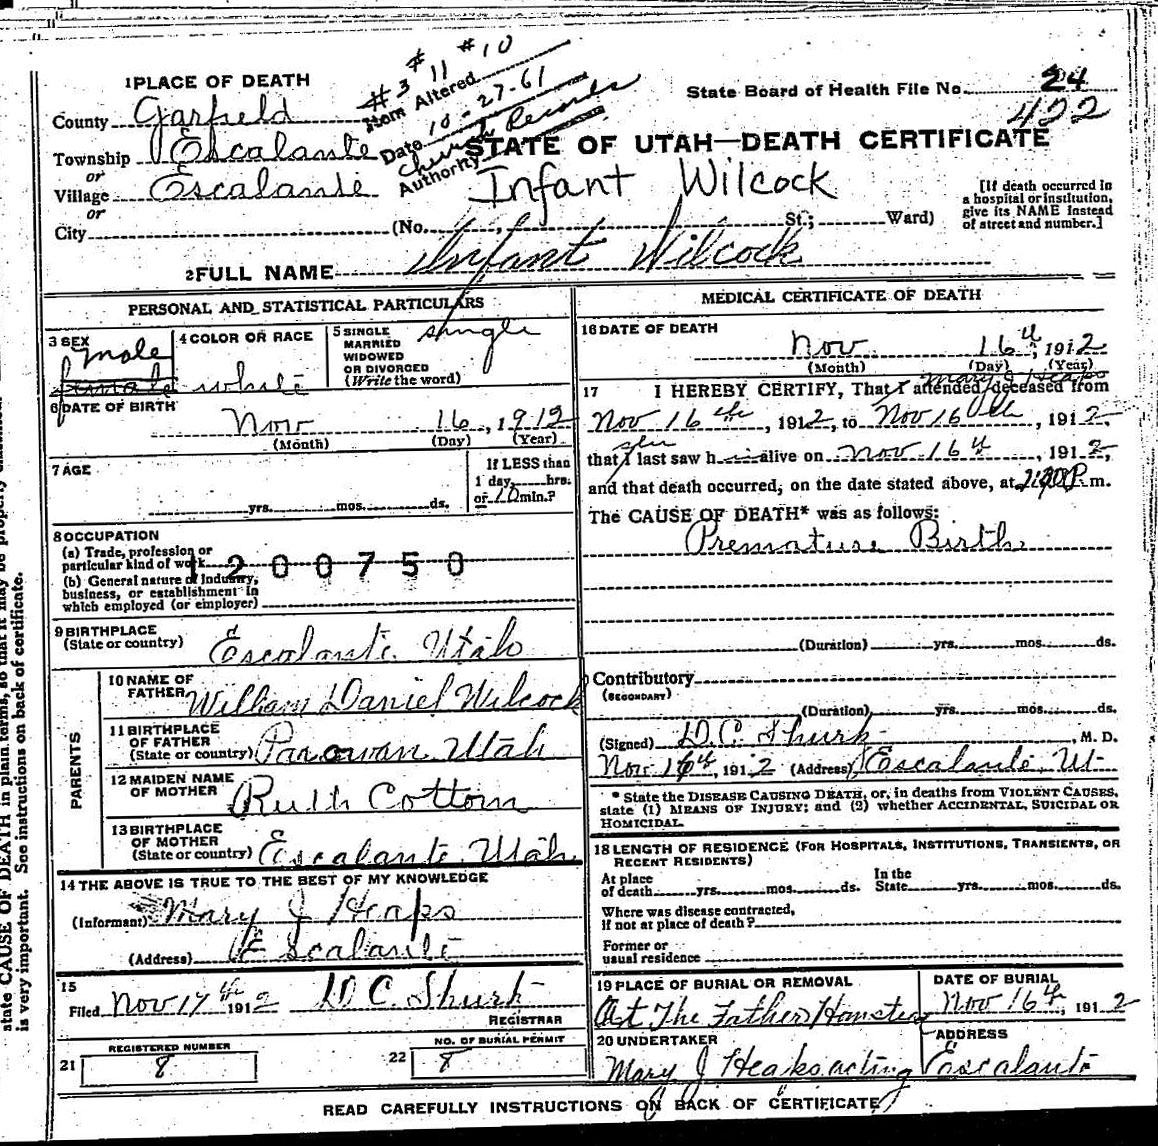 #3 #11 #10
Item Altered
Date 10-27-61
Church Records
Authority
1 PLACE OF DEATH
County Garfield
Township Escalante
or
Village Escalante
or
City
State Board of Health File No. 24
422
STATE OF UTAH—DEATH CERTIFICATE
Infant Wilcock
(No. , St.; Ward)
[If death occurred in
a hospital or institution,
give its NAME instead
of street and number.]
2 FULL NAME Infant Wilcock
PERSONAL AND STATISTICAL PARTICULARS
3 SEX male female
4 COLOR OR RACE white
5 SINGLE
MARRIED
WIDOWED
OR DIVORCED
(Write the word) single
6 DATE OF BIRTH
Nov 16, 1912
(Month) (Day) (Year)
7 AGE
yrs. mos. ds.
If LESS than
1 day, hrs.
or 10 min.?
8 OCCUPATION
(a) Trade, profession or
particular kind of work
1200750
(b) General nature of industry,
business, or establishment in
which employed (or employer)
9 BIRTHPLACE
(State or country) Escalante Utah
PARENTS
10 NAME OF
FATHER William Daniel Wilcock
11 BIRTHPLACE
OF FATHER
(State or country) Parowan Utah
12 MAIDEN NAME
OF MOTHER Ruth Cottom
13 BIRTHPLACE
OF MOTHER
(State or country) Escalante Utah
14 THE ABOVE IS TRUE TO THE BEST OF MY KNOWLEDGE
(Informant) Mary J Heaps
(Address) Escalante
15
Filed Nov 17th 1912 D C Shurk
REGISTRAR
REGISTERED NUMBER
21 8
NO. OF BURIAL PERMIT
22 8
MEDICAL CERTIFICATE OF DEATH
16 DATE OF DEATH
Nov 16th, 1912
(Month) (Day) (Year)
17 I HEREBY CERTIFY, That I attended deceased from
Mary J Heaps
Nov 16th, 1912, to Nov 16th, 1912,
that I last saw h alive on Nov 16th, 1912,
she
and that death occurred, on the date stated above, at P. m.
The CAUSE OF DEATH* was as follows:
Premature Birth
(Duration) yrs. mos. ds.
Contributory
(SECONDARY)
(Duration) yrs. mos. ds.
(Signed) D. C. Shurk, M. D.
Nov 16th, 1912 (Address) Escalante, Ut
* State the DISEASE CAUSING DEATH, or, in deaths from VIOLENT CAUSES,
state (1) MEANS OF INJURY; and (2) whether ACCIDENTAL, SUICIDAL OR
HOMICIDAL.
18 LENGTH OF RESIDENCE (FOR HOSPITALS, INSTITUTIONS, TRANSIENTS, OR
RECENT RESIDENTS)
At place
of death yrs. mos. ds.
In the
State yrs. mos. ds.
Where was disease contracted,
if not at place of death?
Former or
usual residence
19 PLACE OF BURIAL OR REMOVAL
At The Father
DATE OF BURIAL
Nov 16th, 1912
20 UNDERTAKER
Mary J Heaps acting
ADDRESS
Escalante
READ CAREFULLY INSTRUCTIONS ON BACK OF CERTIFICATE
state CAUSE OF DEATH in plain terms, so that it may be properly
is very important. See instructions on back of certificate.